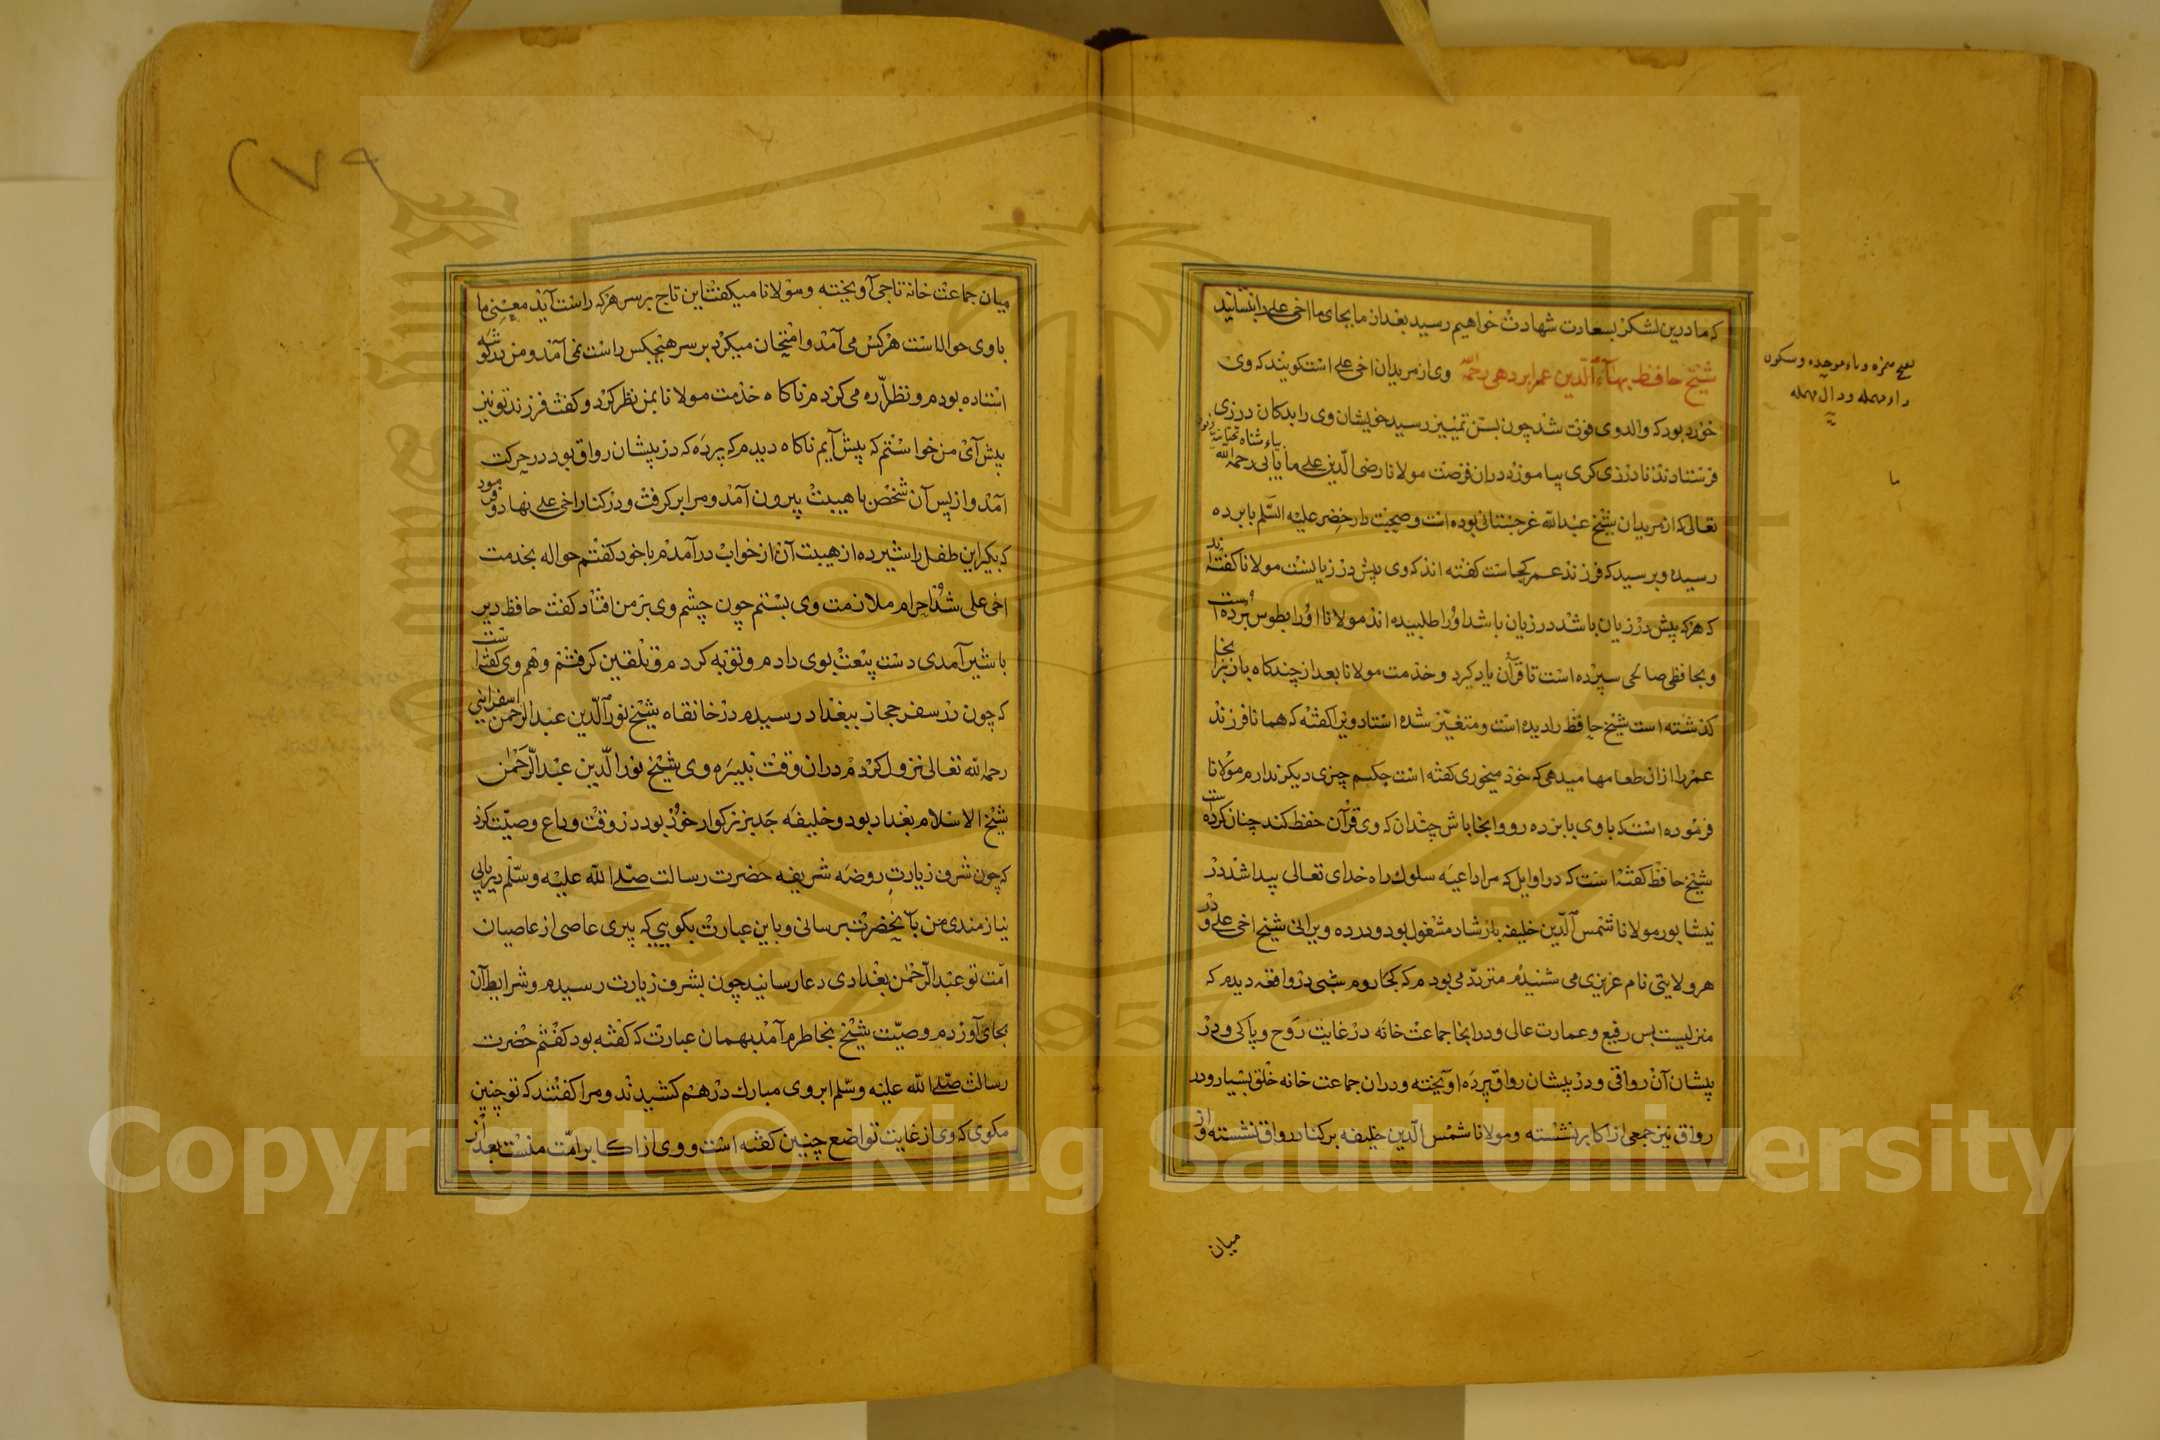 که مادرین لشکر بسعادت شهادت خواهیم رسید بغدان ما بجای ما اخی علی را بنشانید
شیخ حافظ بهاء الدین عمر ابردهی رحمه الله وی از مریدان اخی علی است کویند که وی
خورد بود که والد وی فوت شد چون بسن تمییز رسید خویشان وی را بدکان درزی
فرستادند تا درزی کری بیاموزد دران فرصت مولانا رضی الدین علی مایانی رحمه الله
تعالی که از مریدان شیخ عبد الله غرجستانی بوده است و صحبت دار خضر علیه السلم بابرده
رسیده و پرسید که فرزند عمر کجاست کفته اند که وی پیش درزیانست مولانا کفته
که هرکه پیش درزیان باشد در زیان باشد او را طلبیده اند مولانا او را بطوس برده است
و بحافظی صالحی سپرده است تا قرآن یاد کیرد و خدمت مولانا بعد از چندکاه باز بر آنجا
کذشته است شیخ حافظ را دیده است و متغیر شده استاد ویرا کفته که همانا فرزند
عمر را ازان طعامها میدهی که خود میخوری کفته است چکنم چیزی دیکر ندارم مولانا
فرموده است که با وی بابرده رو و آنجا باش چندان که وی قرآن حفظ کند چنان کرده است
شیخ حافظ کفته است که در اوایل که مرا داعیه سلوک راه خدای تعالی پیدا شد در
نیشابور مولانا شمس الدین خلیفه بارشاد مشغول بود و در ده ویرانی شیخ اخی علی و در
هر ولایتی نام عزیزی می شنیدم متردد می بودم که کجا روم شبی در واقعه دیدم که
منزلیست بس رفیع و عمارت عالی و در آنجا جماعت خانه در غایت روح و پاکی و در
پیشان آن رواقی و در پیشان رواق پرده آویخته و دران جماعت خانه خلق بسیار و در
رواق نیز جمعی از اکابر نشسته و مولانا شمس الدین خلیفه بر کنار رواق نشسته و از
میان
میان جماعت خانه تاجی آویخته و مولانا میکفت این تاج بر سر هرکه راست آید معینی ما
با وی حوالاست هرکس می آمد و امتحان میکرد بر سر هیچکس راست نمی آمد و من بر کوشه
استاده بودم و نظاره می کردم ناکاه خدمت مولانا بمن نظر کرد و کفت فرزند تو نیز
پیش آی من خواستم که پیش آیم ناکاه دیدم که پرده که در پیشان رواق بود در حرکت
آمد و از پس آن شخص با هیبت بیرون آمد و مرا بر کرفت و در کنار اخی علی نهاد و فرمود
که بکیر این طفل را شیر ده از هیبت آن از خواب در آمدم با خود کفتم حواله بخدمت
اخی علی شد احرام ملازمت وی بستم چون چشم وی بر من افتاد کفت حافظ دیر
با شیر آمدی دست بیعت بوی دادم و توبه کردم و تلقین کرفتم و هم وی کفته است
که چون در سفر حجاز ببغداد رسیدم در خانقاه شیخ نور الدین عبد الرحمن اسفراینی
رحمه الله تعالی نزول کردم دران وقت نبیره وی شیخ نور الدین عبد الرحمن
شیخ الاسلام بغداد بود و خلیفه جد بزرکوار خود بود در وقت وداع وصیت کرد
که چون شرف زیارت روضه شریفه حضرت رسالت صلی الله علیه وسلم دریابی
نیازمندی من بآنحضرت برسانی و باین عبارت بکویی که پیری عاصی از عاصیان
امت تو عبد الرحمن بغدادی دعا رسانید چون بشرف زیارت رسیدم و شرایط آن
بجای آوردم وصیت شیخ بخاطرم آمد بهمان عبارت که کفته بود کفتم حضرت
رسالت صلی الله علیه وسلم ابروی مبارک در هم کشیدند و مرا کفتند که تو چنین
مکوی که وی از غایت تواضع چنین کفته است و وی از اکابر امت منست بعد از
Copyright © King Saud University
King Saud University
1957